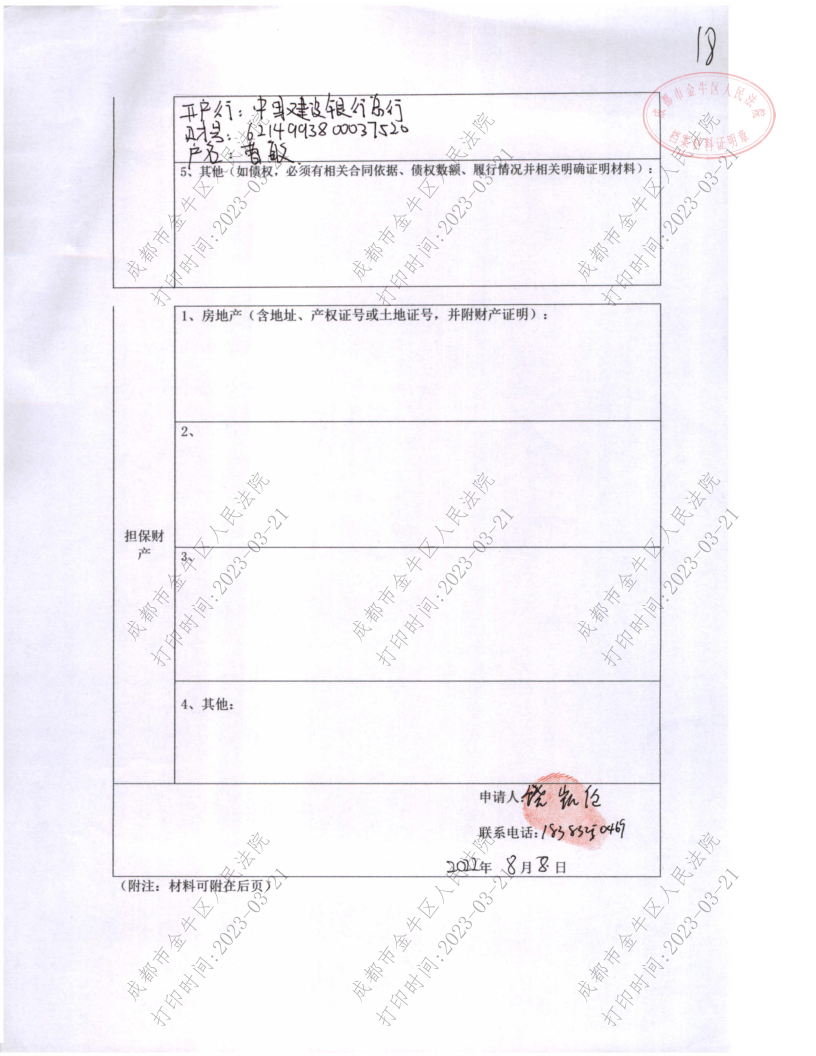 18
成都市金牛区人民法院
档案材料证明章
开户行：中国建设银行
账号：6214993800037520
户名：曹敏
5、其他（如债权，必须有相关合同依据、债权数额、履行情况并相关明确证明材料）：
1、房地产（含地址、产权证号或土地证号，并附财产证明）：
2、
担保财
产
3、
4、其他：
申请人：
联系电话：
2022年 8月8日
（附注：材料可附在后页）
成都市金牛区人民法院
打印时间:2023-03-21
成都市金牛区人民法院
打印时间:2023-03-21
成都市金牛区人民法院
打印时间:2023-03-21
成都市金牛区人民法院
打印时间:2023-03-21
成都市金牛区人民法院
打印时间:2023-03-21
成都市金牛区人民法院
打印时间:2023-03-21
成都市金牛区人民法院
打印时间:2023-03-21
成都市金牛区人民法院
打印时间:2023-03-21
成都市金牛区人民法院
打印时间:2023-03-21